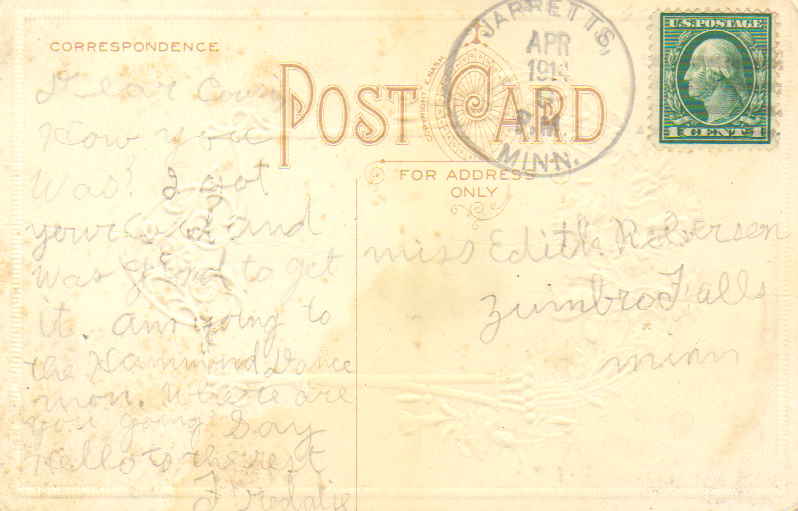 CORRESPONDENCE
POST CARD
FOR ADDRESS
ONLY
JARRETTS,
APR
1914
P.M.
MINN.
U.S. POSTAGE
1 CENT 1
Dear Cousin
How you
was? I got
your card and
was glad to get
it. am going to
the Hammond Dance
mon. Where are
you going Say
Hello to the rest
miss Edith Roberson
Zumbro Falls
minn